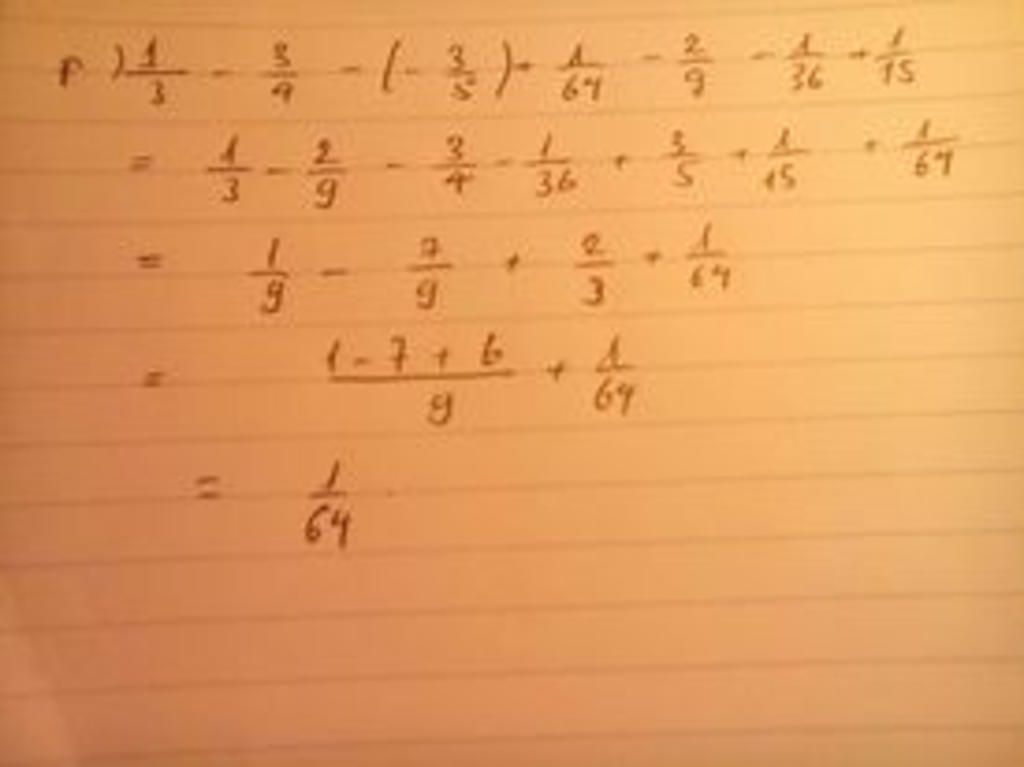 r) 1/3 - 3/4 - (- 3/5) + 1/64 - 2/9 - 1/36 + 1/15
= 1/3 - 2/9 - 3/4 - 1/36 + 3/5 + 1/15 + 1/64
= 1/9 - 7/9 + 2/3 + 1/64
= (1 - 7 + 6)/9 + 1/64
= 1/64